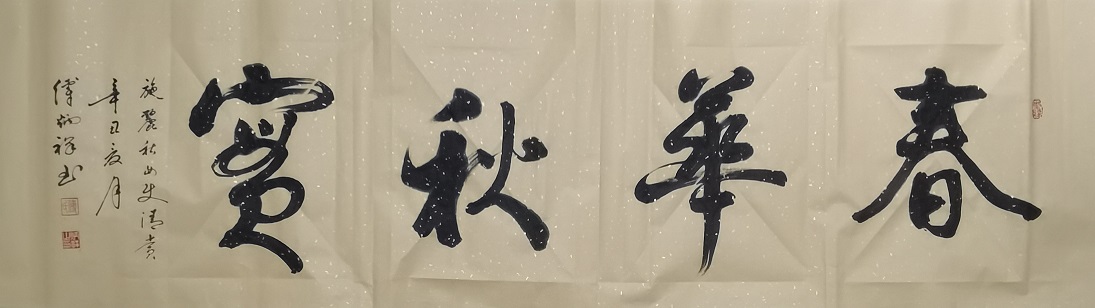 春華秋實
施麗秋女史清賞
辛丑夏月
傅炳祥书